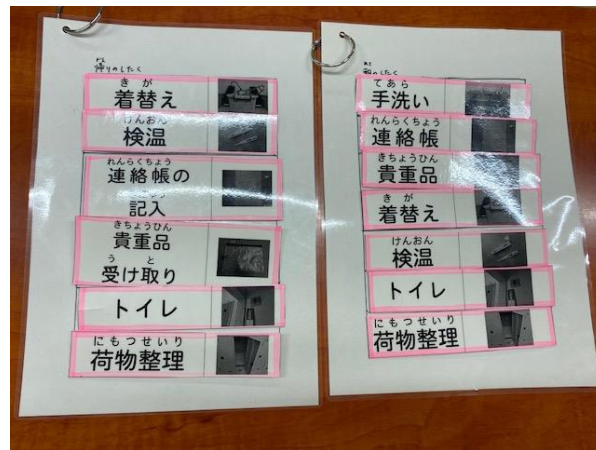 かえ
帰りのしたく
きが
着替え
けんおん
検温
れんらくちょう
連絡帳の
記入
きちょうひん
貴重品
うと
受け取り
トイレ
にもつせいり
荷物整理
朝のしたく
てあら
手洗い
れんらくちょう
連絡帳
きちょうひん
貴重品
きが
着替え
けんおん
検温
トイレ
にもつせいり
荷物整理